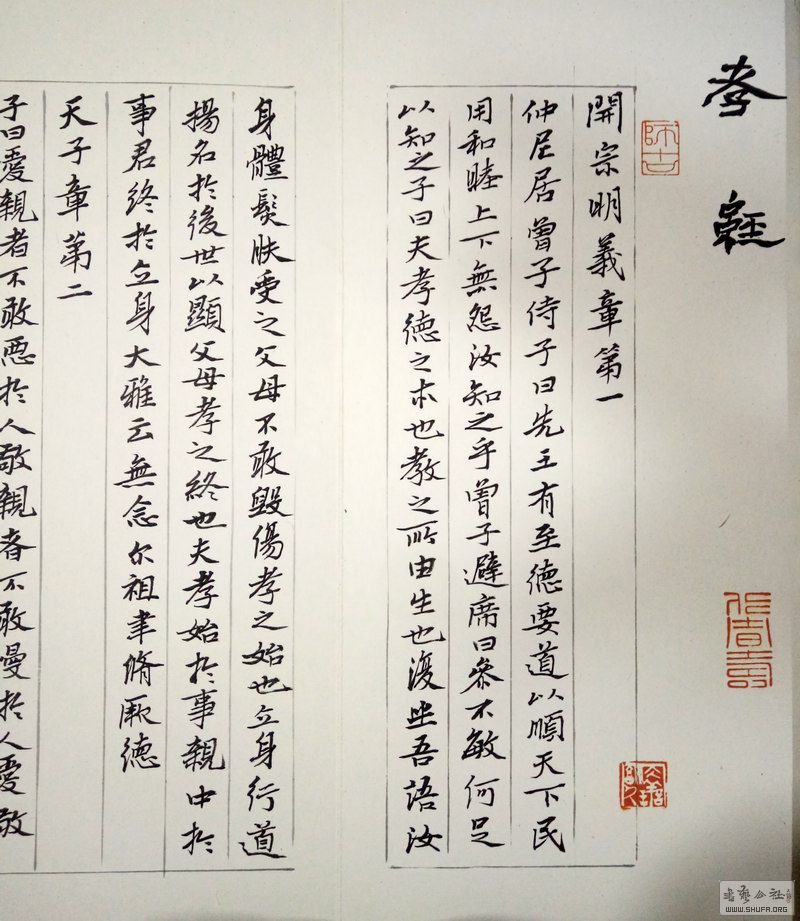 孝經
開宗明義章第一
仲尼居曾子侍子曰先王有至德要道以順天下民
用和睦上下無怨汝知之乎曾子避席曰參不敏何足
以知之子曰夫孝德之本也教之所由生也復坐吾語汝
身體髮膚受之父母不敢毀傷孝之始也立身行道
揚名於後世以顯父母孝之終也夫孝始於事親中於
事君終於立身大雅云無念尔祖聿脩厥德
天子章第二
子曰愛親者不敢惡於人敬親者不敢慢於人愛敬
師古
書藝公社
WWW.SHUFA.ORG